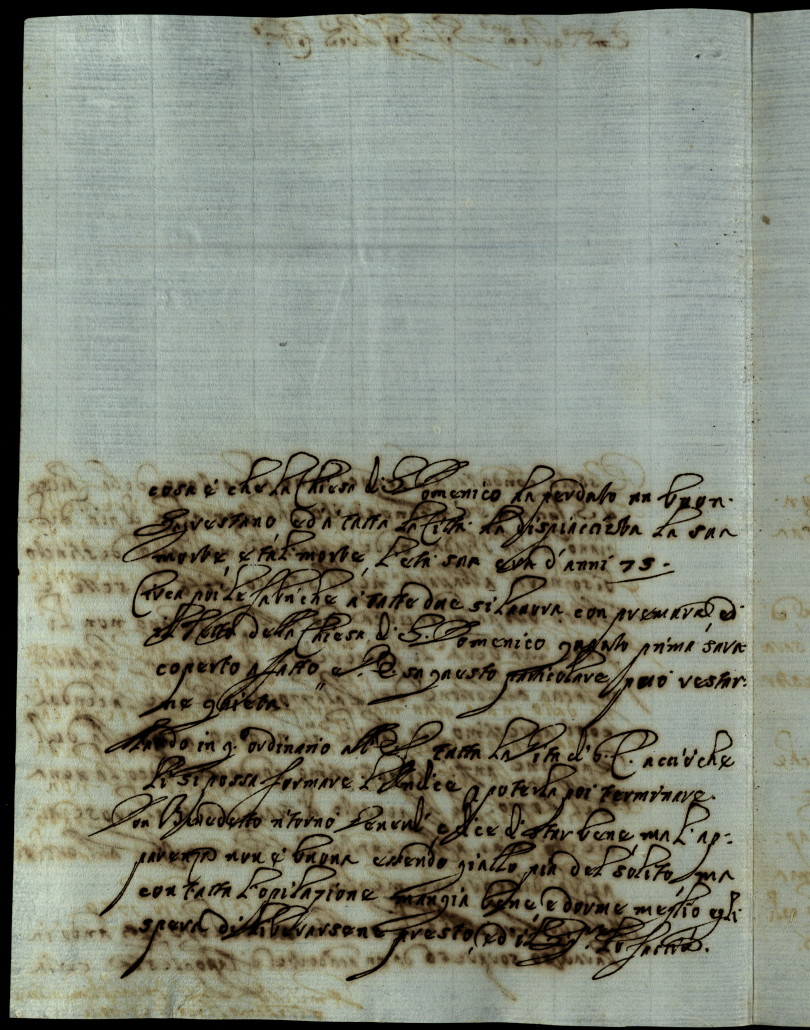 cosa è che la Chiesa di S. Domenico ha perduto un buon
Sagrestano ed à tutta la Città ha dispiacciuta la sua
morte e tal morte, l'età sua era d'anni 75.
Circa poi le fabriche à tutte due si lavora con premura, ed
il tetto della Chiesa di S. Domenico quanto prima sarà
coperto affatto e V. S. in questo particolare può restar-
ne quieta.
Mando in q.o ordinario à V. S. tutta la vita di acciò che
li si possa formare l'Indice, e poterla poi terminare.
Don Benedetto ritornò Venerdì e dice di star bene ma l'ap-
parenza non è buona essendo giallo più del solito, ma
con tutta l'opilazione mangia bene e dorme meglio egli
spera di liberarsene presto, ed il Sig.re lo faccia.